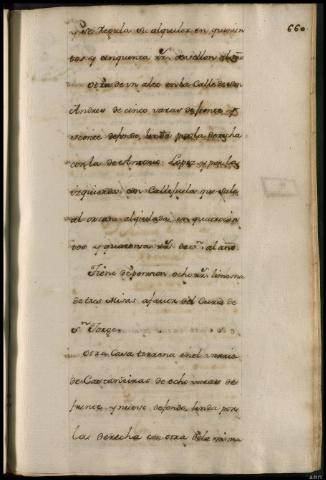 660
y se regula su alquiler en quinien
tos y cinquenta rr.s de vellon al año
Otra de un alto en la Calle de San
Andres de cinco varas de frente y
veinte de fondo, linda por la derecha
con la de Antonio Lopez y por la
izquierda con Callejuela que sale
al alquilada en quinien
tos y quarenta rr.s de v.n al año.
Tiene de pension ocho rr.s limosna
de tres Misas a favor del Cura de
S.n Jorge.
Otra Casa terrena en el varrio
de de ocho varas de
frente, y nueve de fondo, linda por
la derecha con otra de la misma